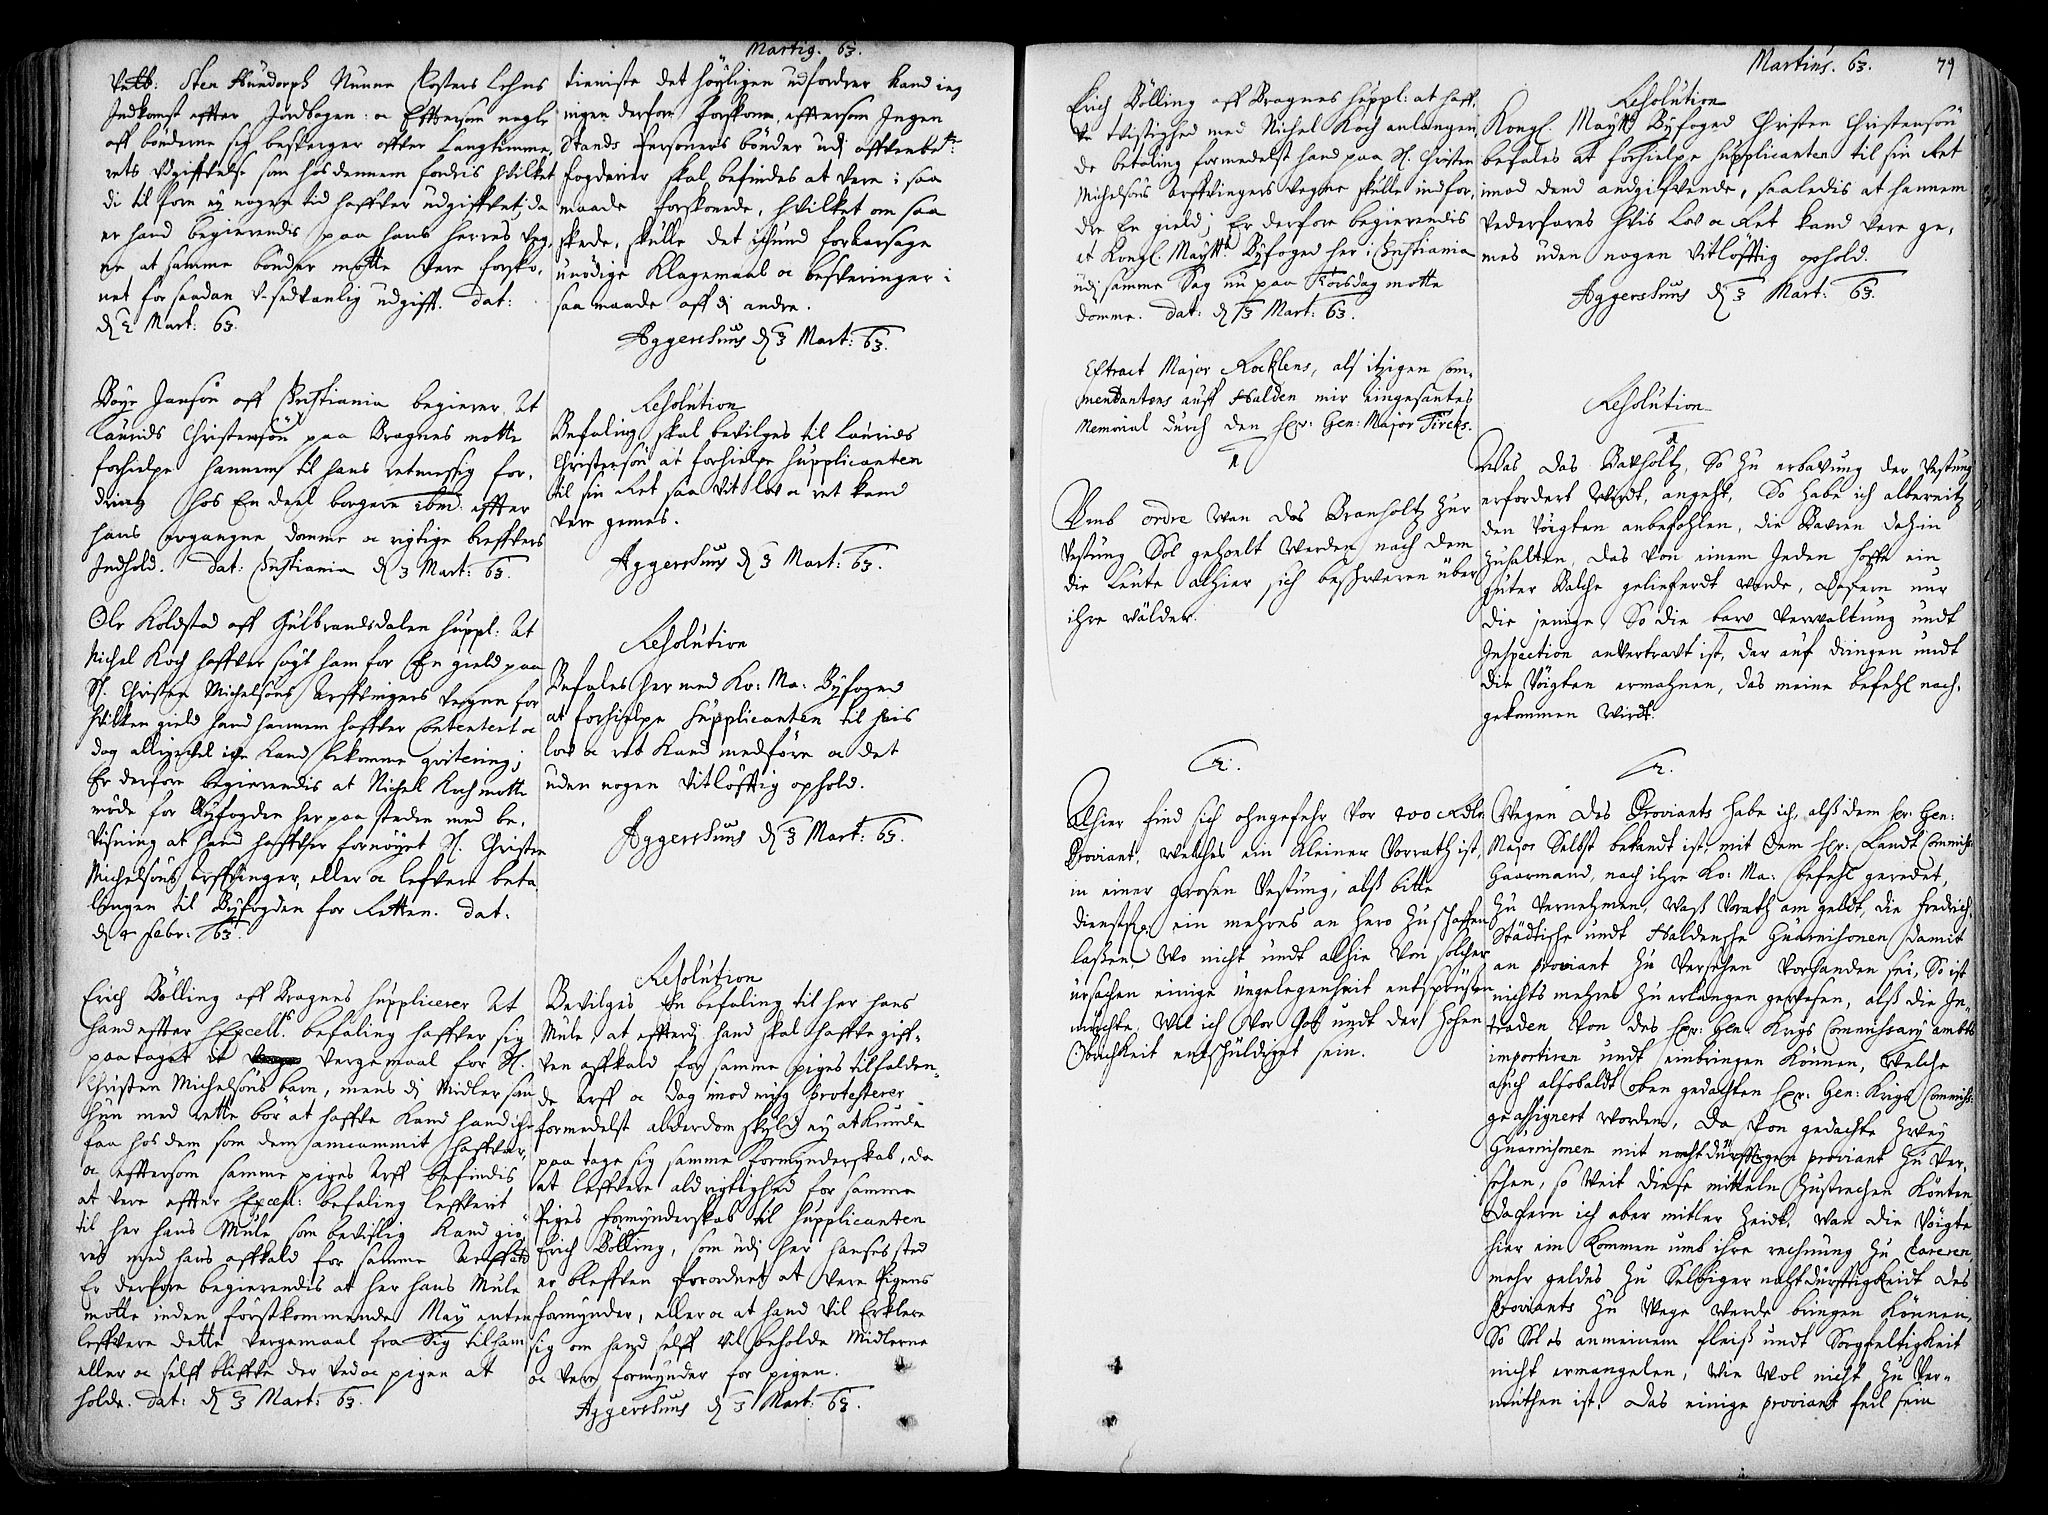 Martig. 63.
Vetb: Sten Hundorph Nunne Closters Lehns
Indkomst effter Jordbogen: oc Efftersom nogle
aff bønderne sig beskerger offver Langtimme,
rets Udgifftvelse som hos dennem fordris hvilket
di til forn ey nogen tid haffver udgiffvet, da
er hand begierendis paa hans Herres Veg,
ne at samme bønder motte Vere forsko,
net for saadan V-sedvanlig udgifft. Dat:
d 2 Mart: 63.
Boye Jansøn aff Christiania begierer At
Laurids Christensøn paa Bragnes motte
forhielpe hannem til hans retmessig for,
dring hos En deel borgere ibm: effter
hans ergangne domme oc rigtige breffvers
Indhold. Dat: Christiania d 3 Mart: 63.
Ole Koldstad aff Gulbrandsdalen suppl: At
Michel Koch haffver søgt ham for En gield paa
Sl. Christen Michelsøns Arffvingers Vegne for
hvilken gield hand hannem haffver Contentert oc
dog alligevel icke kand bekomme qvitering;
Er derfore begierendis at Michel Koch motte
møde for Byfogden her paa steden med be,
visning at hand haffver fornøyet Sl. Christen
Michelsøns Arffvinger, eller oc leffvere beta,
lingen til Byfogden for Retten. Dat:
d 4 Febr: 63.
Erich Bölling aff Bragnes supplicerer At
hand effter hExcell.s befaling haffver sig
paataget it Vergemaal for Sl.
Christen Michelsøns barn, mens di Midler som
hun med rette bør at haffve kand hand iche
faa hos dem som dem annammit haffver,
oc efftersom samme piges Arff befindis
at vere effter hExcell: befaling leffverit
til her hans Mule som bevislig kand giø,
ris med hans affkald for samme Arffve
Er derfore begierendis at her hans Mule
motte inden førstkommende May enten
leffvere dette Vergemaal fra Sig til ham
eller oc selff bliffve der ved oc pigen at
holde. Dat: d 3 Mart: 63.
tieniste det høyligen udfordrer kand ing
ingen derfore forskone, efftersom Ingen
Stands Personers bønder udj offvenbete:
fogderier skal befindes at vere i saa
maade forskonede, hvilket om saa
skede, skulle det ichund foraarsage
unødige klagemaal oc besveringer i
saa maade aff di andre.
Aggershuus d 3 Mart: 63.
Resolution
Befaling skal bevilges til Laurids
Christensøn at forhielpe Supplicanten
til sin Ret saa vit lov oc ret kand
vere gemes.
Aggershuus d 3 Mart: 63.
Resolution
Befales her med Ko: Ma: Byfoged
at forhielpe Supplicanten til hvis
lov oc ret kand medføre oc det
uden nogen Vitløfftig ophold.
Aggershuus d 3 Mart: 63.
Resolution
Bevilges En befaling til her hans
Mule, at effterdj hand skal haffve giff,
ven affkald for samme piges tilfalden,
de Arff oc dog imod mig protesterer
formedelst alderdom skyld ey at kunde
paa tage sig samme formynderskab, da
at leffvere all rigtighed for samme
Piges formynderskab til Supplicanten
Erich Bölling, som udj her Hanses sted
er bleffven forordnet at vere Pigens
formynder, eller oc at hand vil Erklere
sig om hand selff vil beholde Midlerne
oc vere formynder for pigen.
Aggershuus d 3 Mart: 63.
Martius. 63. 79
Erich Bölling aff Bragnes suppl: at haff,
ve tvistighed med Michel Koch anlangen,
de betaling formedelst hand paa Sl. Christen
Michelsøns Arffvingers Vegne skulle indfor,
dre En gield; Er derfore begierendis
at Kongl. Maytts Byfoged her i Christiania
udj samme Sag nu paa Torsdag motte
domme. Dat: d 3 Mart: 63.
Extract Major Rocklens, als itzigen com,
mendantens auff Halden mir eingesantes
Memorial durch den Hr: Gen: Major Fircks.
1
Umb ordre wan das Branholtz zur
Vestung Sol geholt werden nach dem
die Leute alhier sich beschweren über
ihre wälder.
2.
Alhier find sich ohngefehr vor 200 Rdlr
Proviant, welches ein kleiner Vorrath ist,
in einer grosen Vestung, alß bitte
dienstl. ein mehres an hero zu schaffen
laßen, Wo nicht undt alhie von solcher
ursachen einige ungelegenheit entsprüßen
müchte, Wil ich vor Gott undt der Hohen
Obrichkeit entschüldiget sein.
Resolution
Kongl. Maytts Byfoged Christen Christensøn
befales at forhielpe Supplicanten til sin Ret
imod dend andgifvende, saaledis at hannem
vederfares hvis lov oc Ret kand vere ge,
mes uden nogen vitløfftig ophold.
Aggershuus d 3 Mart: 63.
Resolution
1
Was das Bavholtz, So zu erbavung der Vestung
erfordert wirdt, angeht, So habe ich albereitz
den Vöigten anbefohlen, die Bavren dahin
zuhalten, das von einem Jeden hoffe ein
guter Balche gelieferdt werde, Dafern nur
die jenige So die bav verwaltung undt
Inspection anvertravt ist, dar auf dringen undt
die Vöigten ermahnen, das meine befehl nach,
gekommen wirdt.
2.
Wegen des Proviants habe ich, alß dem Hr: Gen:
Major Selbst bekandt ist, mit dem Hr: Landt Commiss:
Haarmand, nach ihre Ko: Ma: befehl geredet,
zu vernehmen, waß Vorath am geldt, die Fredrich,
Städtische undt Haldensche Guarnisonen damit
an proviant zu versehen vorhanden sei, So ist
nichts mehres zu erlangen gewesen, alß die In,
traden von des Hr: Gen: Krigs Commissary ambte
importiren undt einbringen können, welche
auch alsobaldt oben gedachten Hr: Gen: Krigs Commiss:
geassignert worden, Da von gedachte zwey
Guarnisonen mit nothdürfftigen proviant zu ver,
sehen, so weit diese mitteln zustrechen könten
Dafern ich aber mitler Zeidt, wan die Vöigte
hier ein kommen umb ihre rechnung zu clareren
mehr geldes zu Selbiger nohtdürfftigkeidt des
Proviants zu wege werde bringen können,
So Sol es an meinem fleiß undt Sorgfeltigkeit
nicht ermangelen, wie wol nicht zu ver,
muthen ist, das einige proviant feil sein